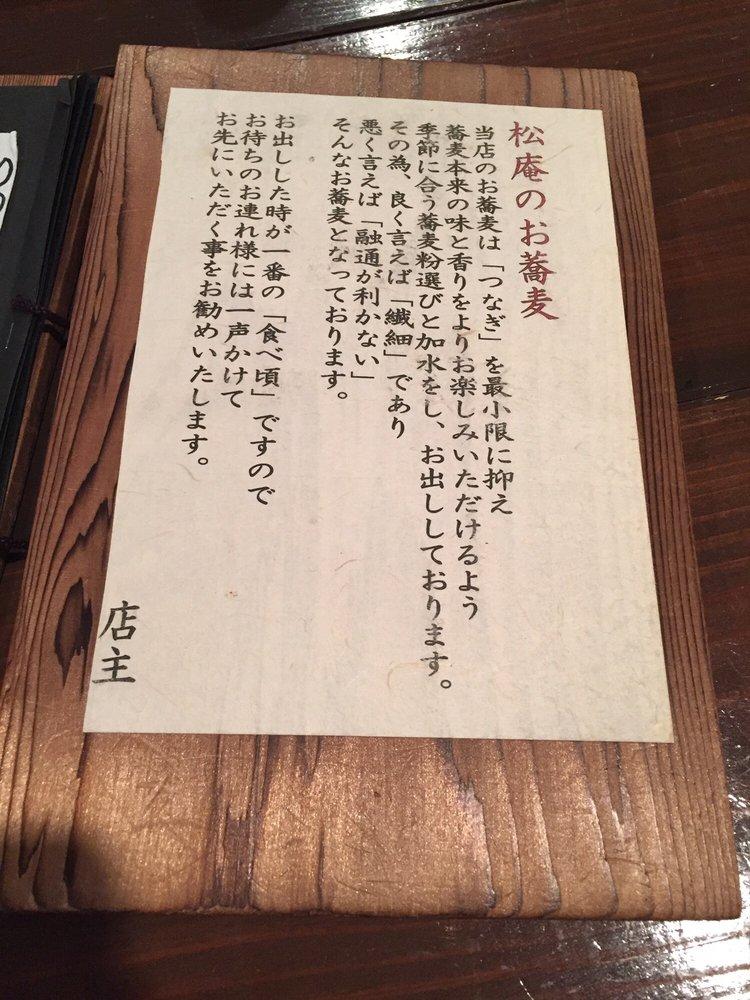 松庵のお蕎麦
当店のお蕎麦は「つなぎ」を最小限に抑え
蕎麦本来の味と香りをよりお楽しみいただけるよう
季節に合う蕎麦粉選びと加水をし、お出ししております。
その為、良く言えば「繊細」であり
悪く言えば「融通が利かない」
そんなお蕎麦となっております。
お出しした時が一番の「食べ頃」ですので
お待ちのお連れ様には一声かけて
お先にいただく事をお勧めいたします。
店主